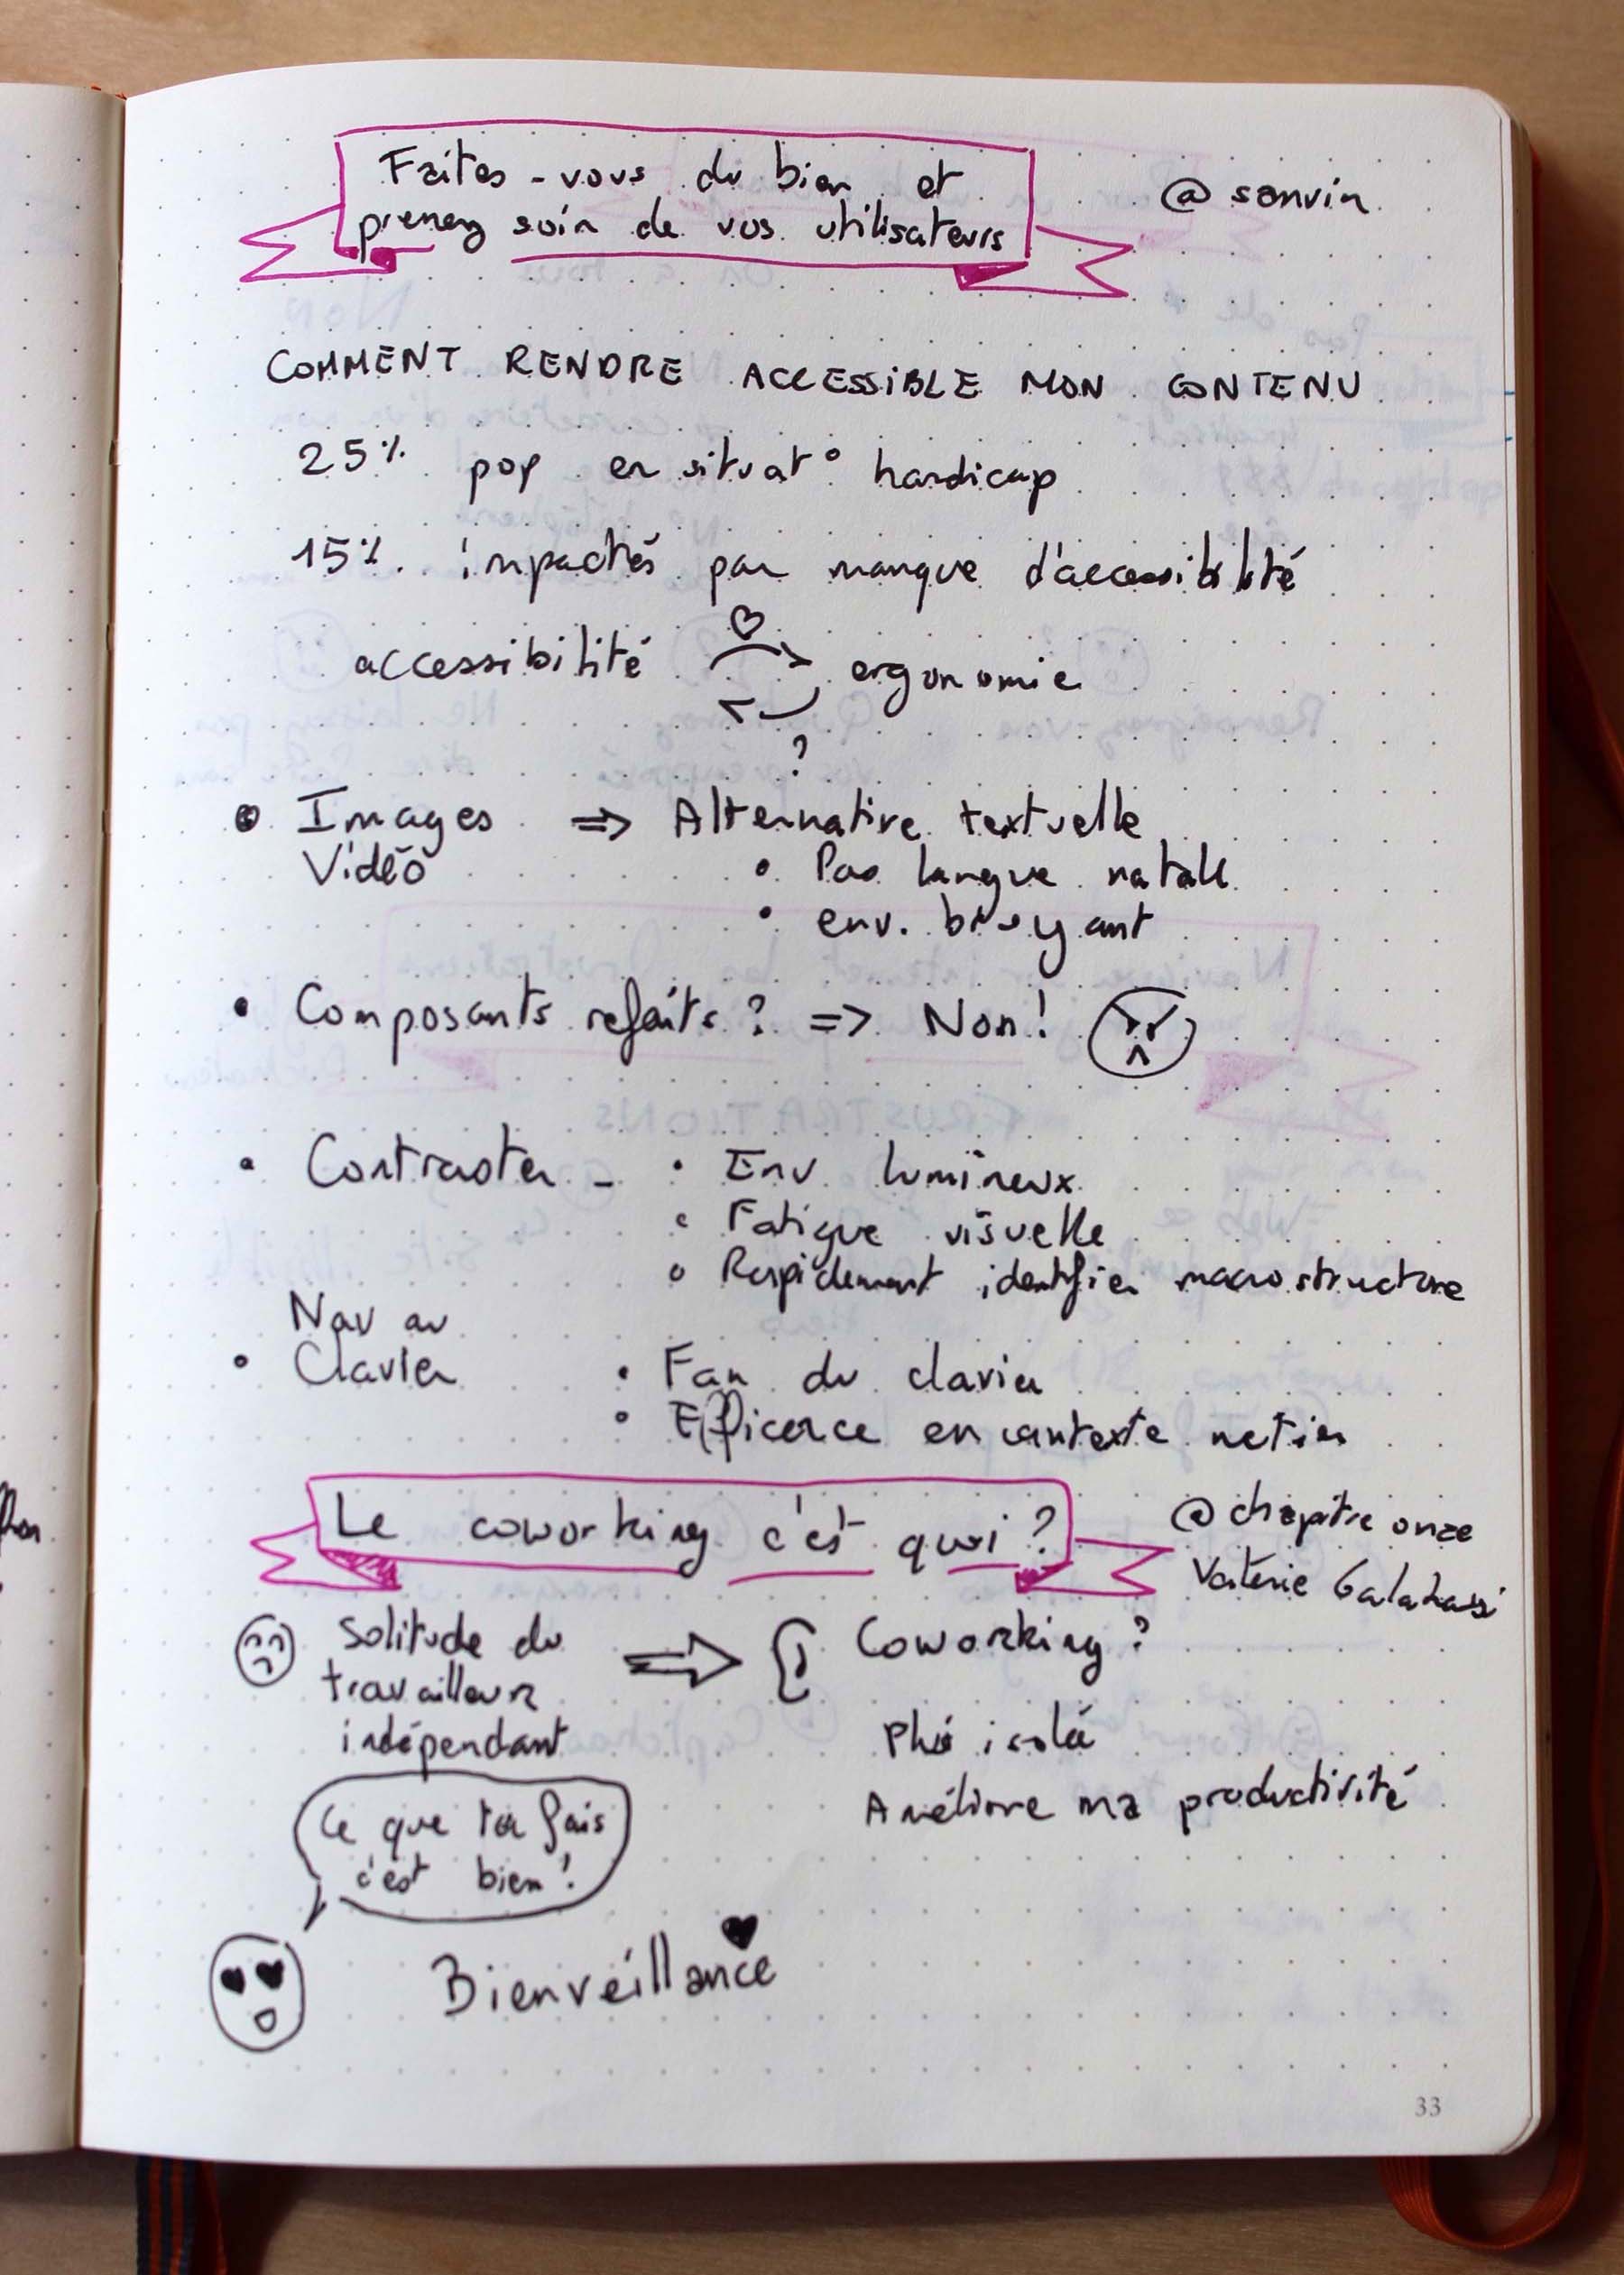 Faites-vous du bien et
prenez soin de vos utilisateurs
@ sonvin
COMMENT RENDRE ACCESSIBLE MON CONTENU
25% pop en situat° handicap
15% impactés par manque d'accessibilité
accessibilité ergonomie
?
Images => Alternative textuelle
Vidéo
• Pas langue natale
• env. bruyant
• Composants refaits ? => Non !
• Contraster - • Env lumineux
• Fatigue visuelle
• Rapidement identifier macrostructure
Nav au
• Clavier • Fan du clavier
• Efficace en contexte métier
Le coworking c'est quoi ?
@ chapitre onze
Valérie
Solitude du
travailleur
indépendant
=> Coworking ?
Plus isolé
Améliore ma productivité
Ce que tu fais
c'est bien !
Bienveillance
33